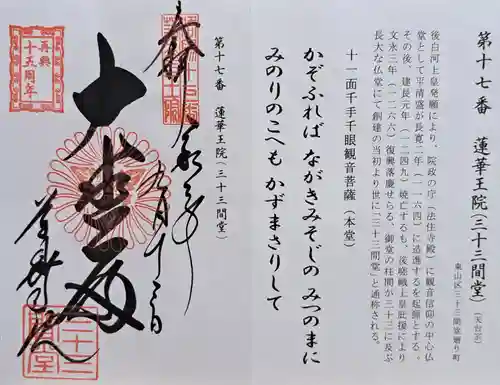 第十七番 蓮華王院(三十三間堂)(天台宗)
東山区三十三間堂廻り町
後白河上皇発願により、院政の庁(法住寺殿)に観音信仰の中心仏
堂として平清盛が長寛二年(一一六四)に造進するを起源とする。
その後、建長元年(一二四九)焼亡するも、後嵯峨上皇庇援により
文永三年(一二六六)復興落慶せらる。御堂の柱間が三十三に及ぶ
長大な仏堂にて創建の当初より世に「三十三間堂」と通称される。
十一面千手千眼観音菩薩(本堂)
かぞふれば ながきみそじの みつのまに
みのりのこへも かずまさりして
第十七番 蓮華王院(三十三間堂)
奉拝
九月十三日
大悲殿
三十三
間堂
再興
十五周年